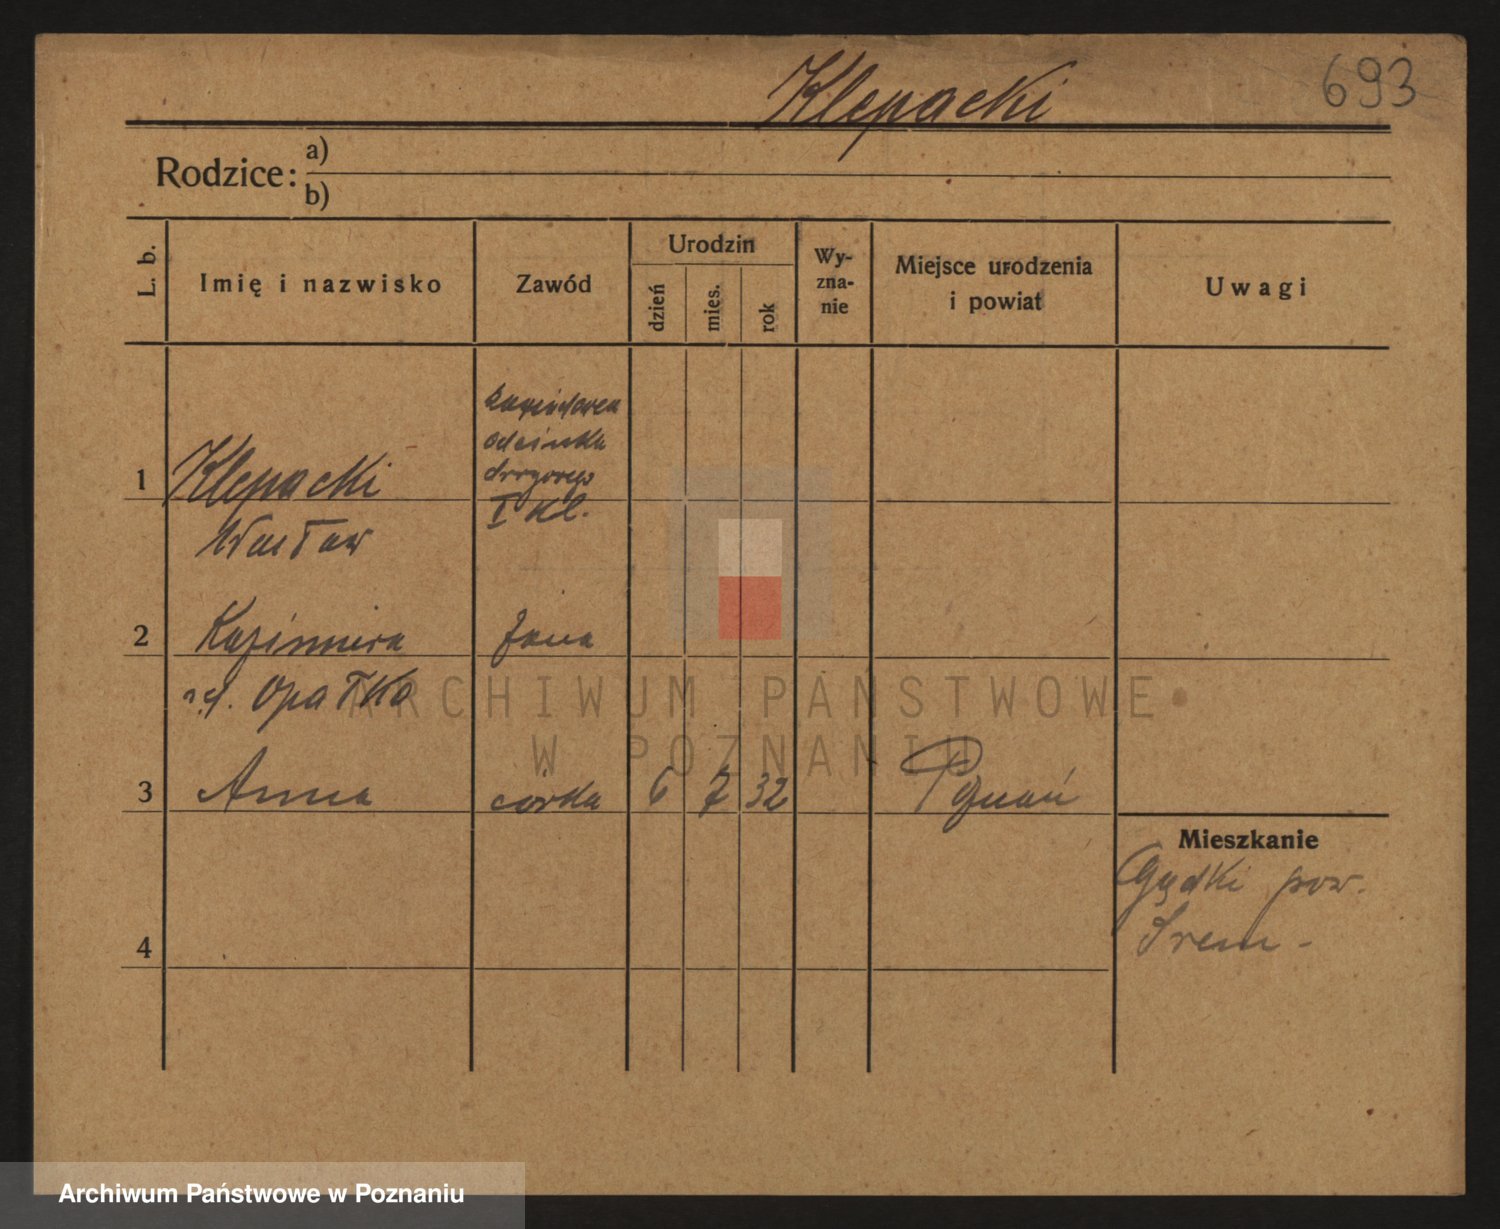 Klepacki
693
Rodzice: a)
b)
L. b.
Imię i nazwisko
Zawód
Urodzin
dzień
mies.
rok
Wy-
zna-
nie
Miejsce urodzenia
i powiat
Uwagi
1
Klepacki
Wacław
odcinka
drogowego
I kl.
2
Kazimiera
żona
z d. Opałka
3
Anna
córka
6
7
32
Poznań
Mieszkanie
Gądki pow.
Śrem -
4
ARCHIWUM PAŃSTWOWE
W POZNANIU
Archiwum Państwowe w Poznaniu